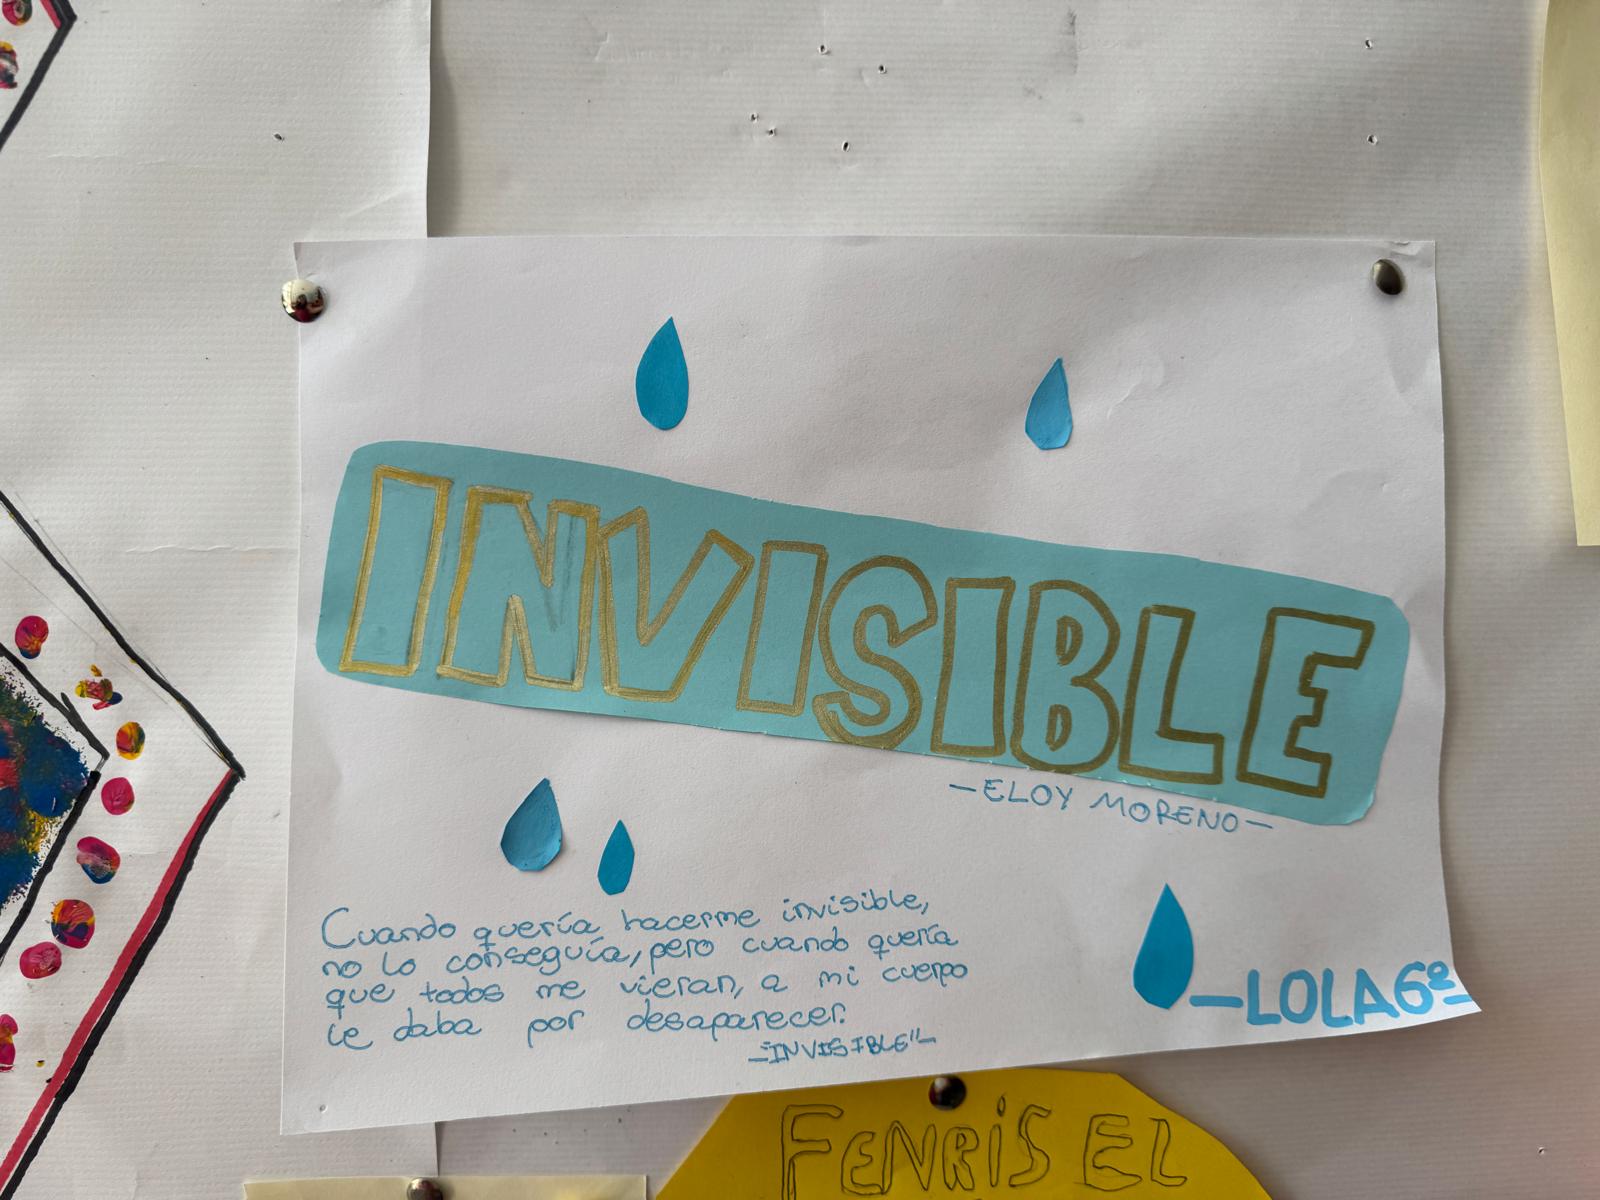 INVISIBLE
—ELOY MORENO—
Cuando quería hacerme invisible,
no lo conseguía, pero cuando quería
que todos me vieran, a mi cuerpo
le daba por desaparecer.
—"INVISIBLE"—
—LOLA 6º—
FENRIS EL